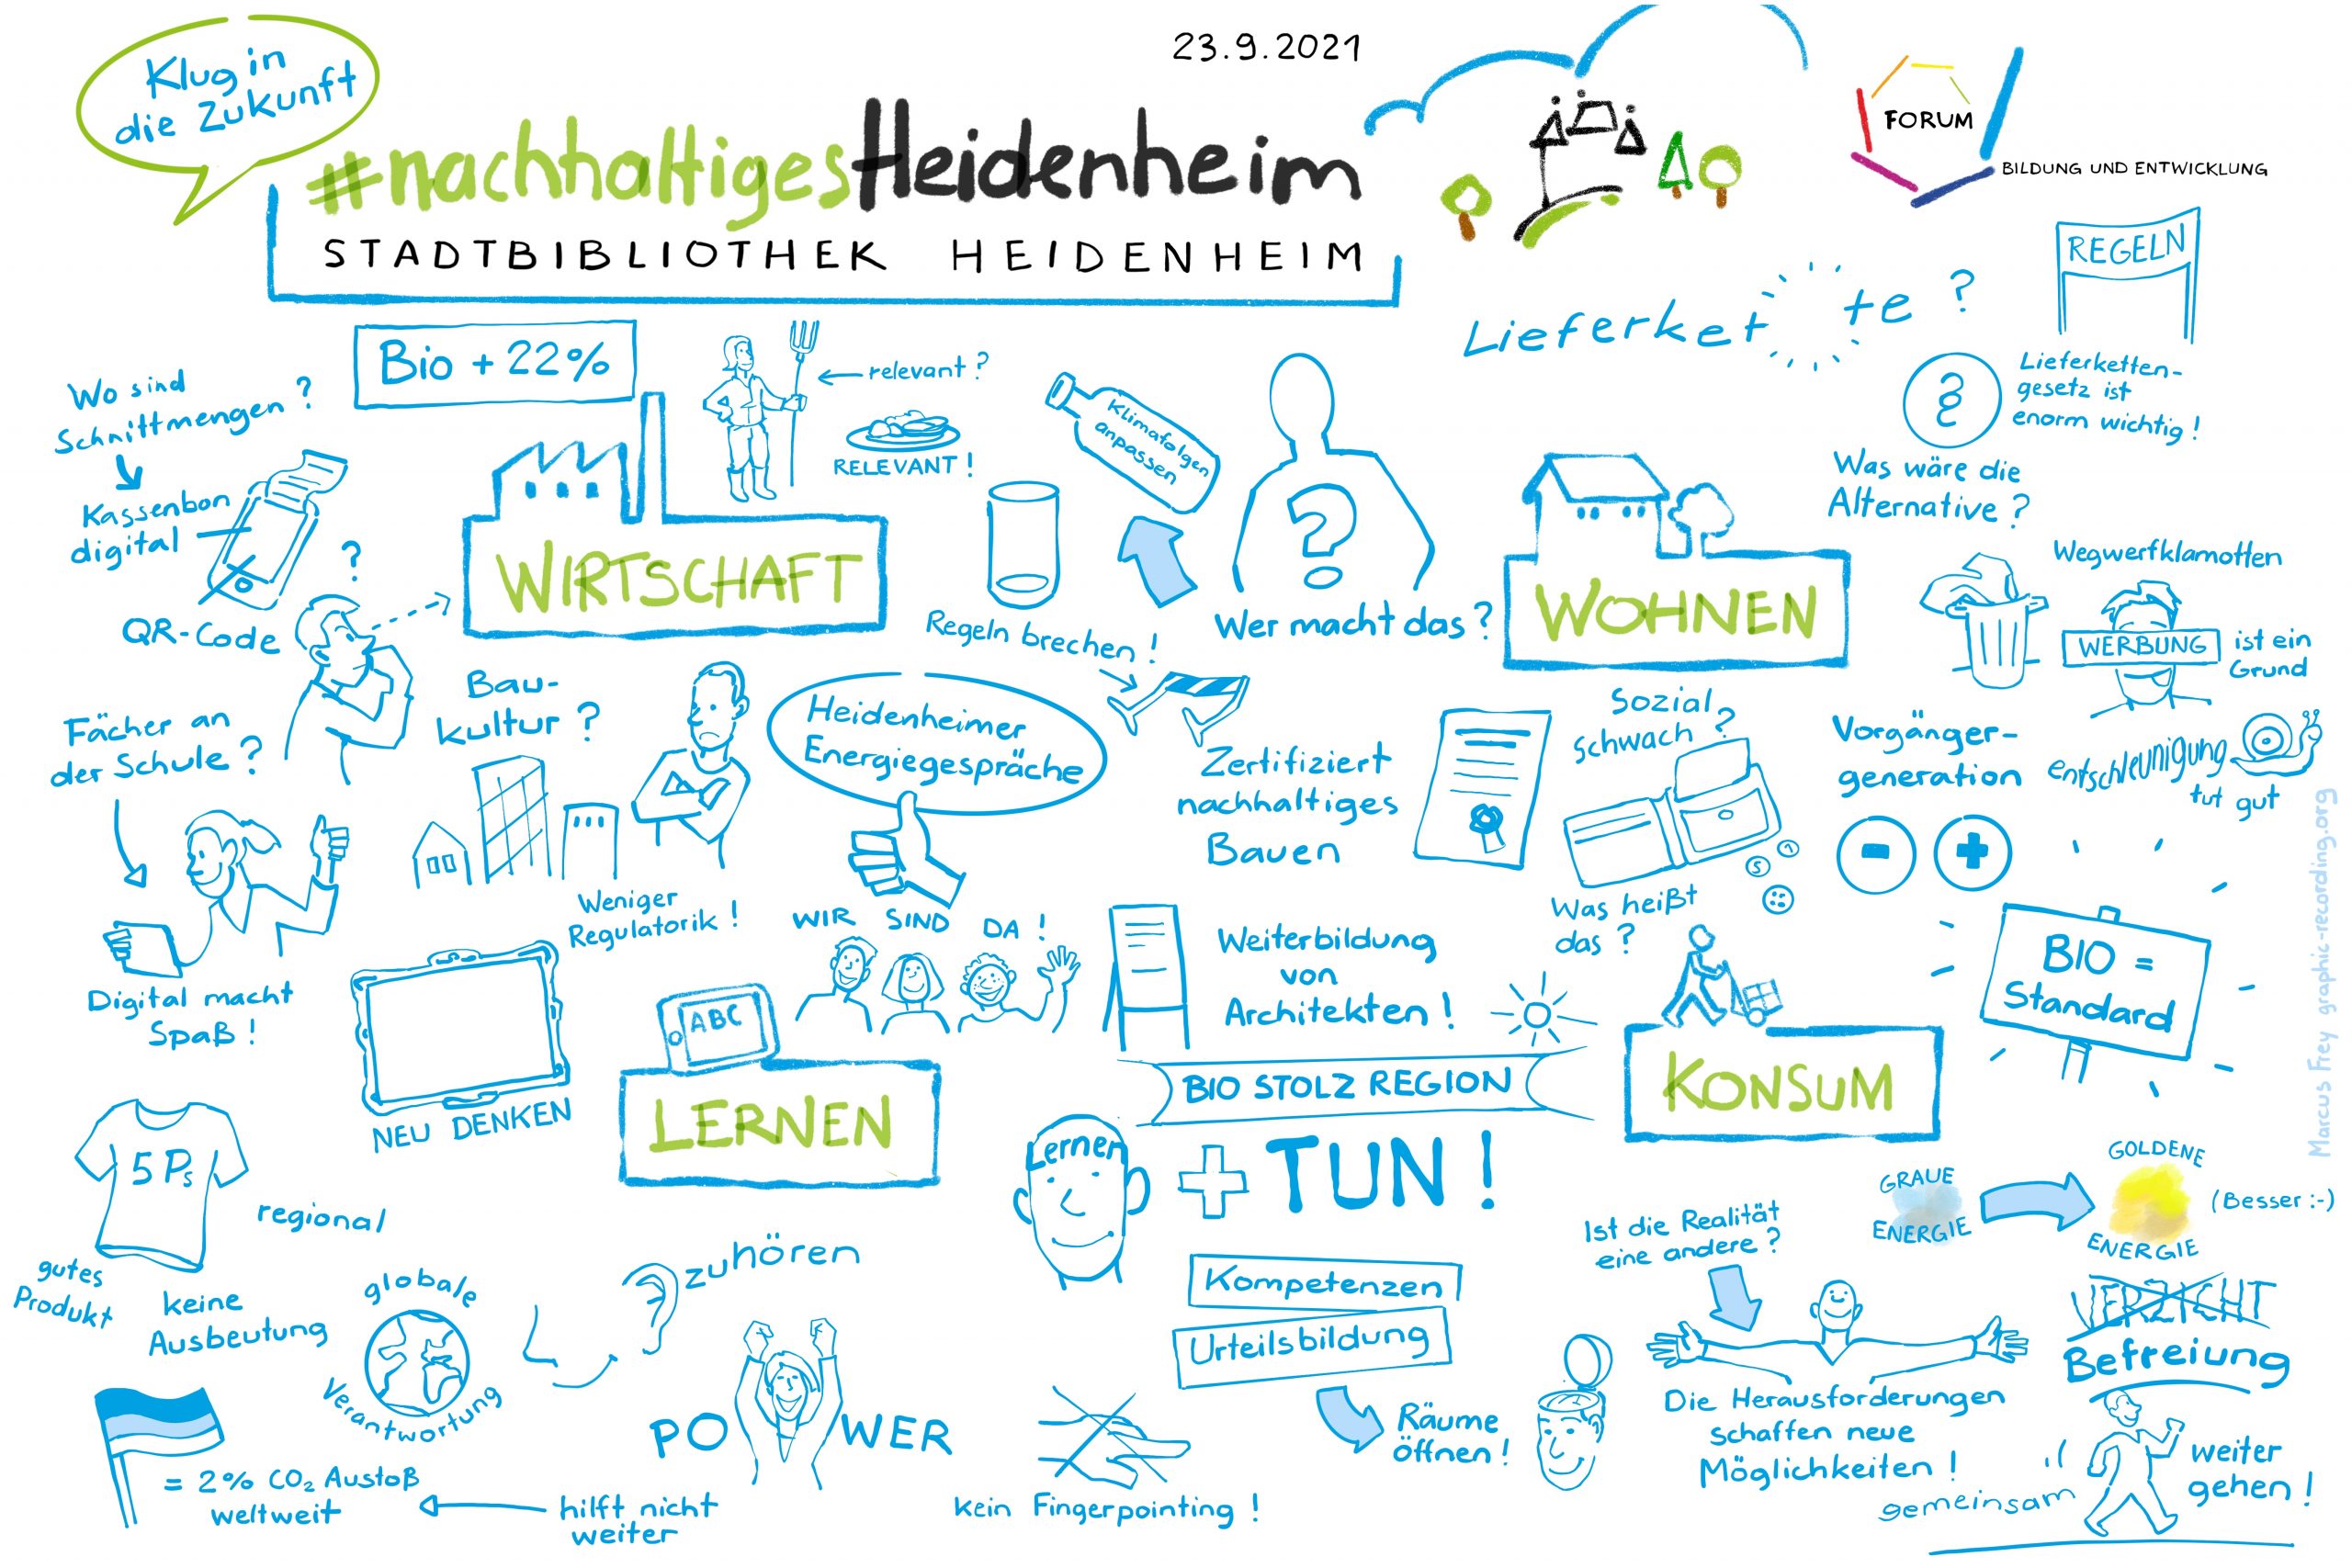 Klug in
die Zukunft
23.9.2021
#nachhaltigesHeidenheim
STADTBIBLIOTHEK HEIDENHEIM
FORUM
BILDUNG UND ENTWICKLUNG
Wo sind
Schnittmengen?
Kassenbon
digital
QR-Code
?
Bio + 22%
relevant?
RELEVANT!
WIRTSCHAFT
Klimafolgen
anpassen
Regeln brechen!
?
Wer macht das?
Lieferket te?
REGELN
§
Lieferketten-
gesetz ist
enorm wichtig!
Was wäre die
Alternative?
WOHNEN
Wegwerfklamotten
WERBUNG
ist ein
Grund
Fächer an
der Schule?
Digital macht
Spaß!
Bau-
kultur?
Weniger
Regulatorik!
Heidenheimer
Energiegespräche
WIR SIND DA!
Zertifiziert
nachhaltiges
Bauen
Sozial
schwach?
5
1
Was heißt
das?
Vorgänger-
generation
- +
entschleunigung
tut gut
NEU DENKEN
ABC
LERNEN
Weiterbildung
von
Architekten!
BIO STOLZ REGION
Lernen
+ TUN!
KONSUM
BIO =
Standard
Marcus Frey graphic-recording.org
5 Ps
regional
gutes
Produkt
keine
Ausbeutung
globale
Verantwortung
zuhören
= 2% CO₂ Austoß
weltweit
hilft nicht
weiter
POWER
kein Fingerpointing!
Kompetenzen
Urteilsbildung
Räume
öffnen!
Ist die Realität
eine andere?
Die Herausforderungen
schaffen neue
Möglichkeiten!
GRAUE
ENERGIE
GOLDENE
ENERGIE
(Besser :-)
VERZICHT
Befreiung
gemeinsam
weiter
gehen!